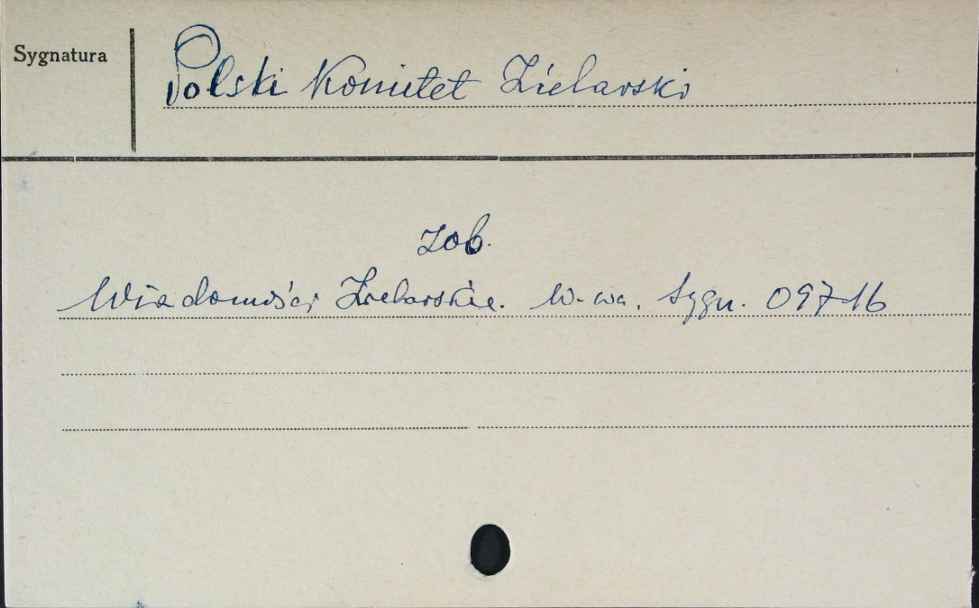 Sygnatura
Polski Komitet Zielarski
zob.
Wiadomości Zielarskie. W-wa. Sygn. 09716